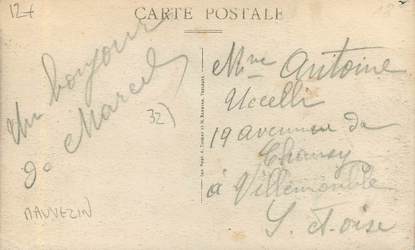 12+
CARTE POSTALE
Un bonjour
de Marcel
32)
MAUVEZIN
Mme Antoine
Uccelli
19 avenue de
Chanzy
à Villemomble
S. et-oise